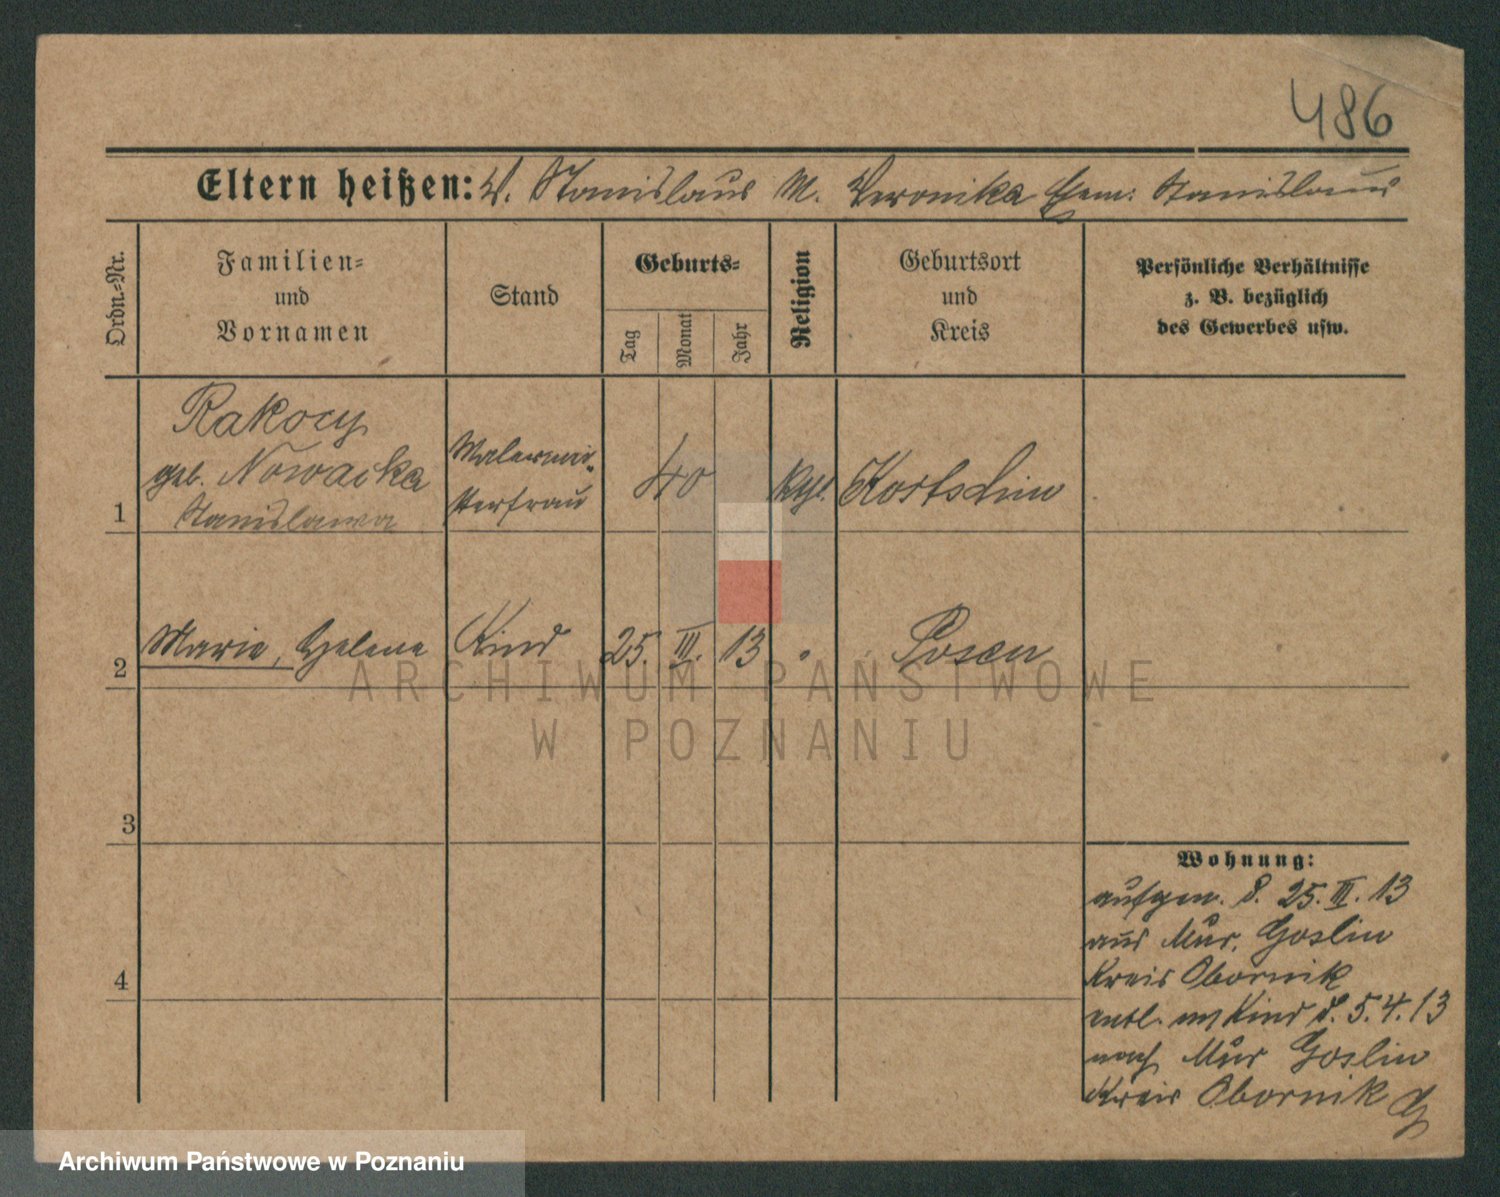 486
Eltern heißen: V. Stanislaus M. Veronika Ehem: Stanislaus
Ordn.-Nr.
Familien-
und
Vornamen
Stand
Geburts-
Tag
Monat
Jahr
Religion
Geburtsort
und
Kreis
Persönliche Verhältnisse
z. B. bezüglich
des Gewerbes usw.
1
Rakocy
geb. Nowacka
Stanislawa
Malermei-
sterfrau
40
kath.
Kostschin
2
Marie, Helene
Kind
25. III. 13
"
Posen
ARCHIWUM PAŃSTWOWE
W POZNANIU
3
4
Wohnung:
aufgen. d. 25. III. 13
aus Mur. Goslin
Kreis Obornik
entl. m Kind d. 5.4.13
nach Mur Goslin
Kreis Obornik
Archiwum Państwowe w Poznaniu